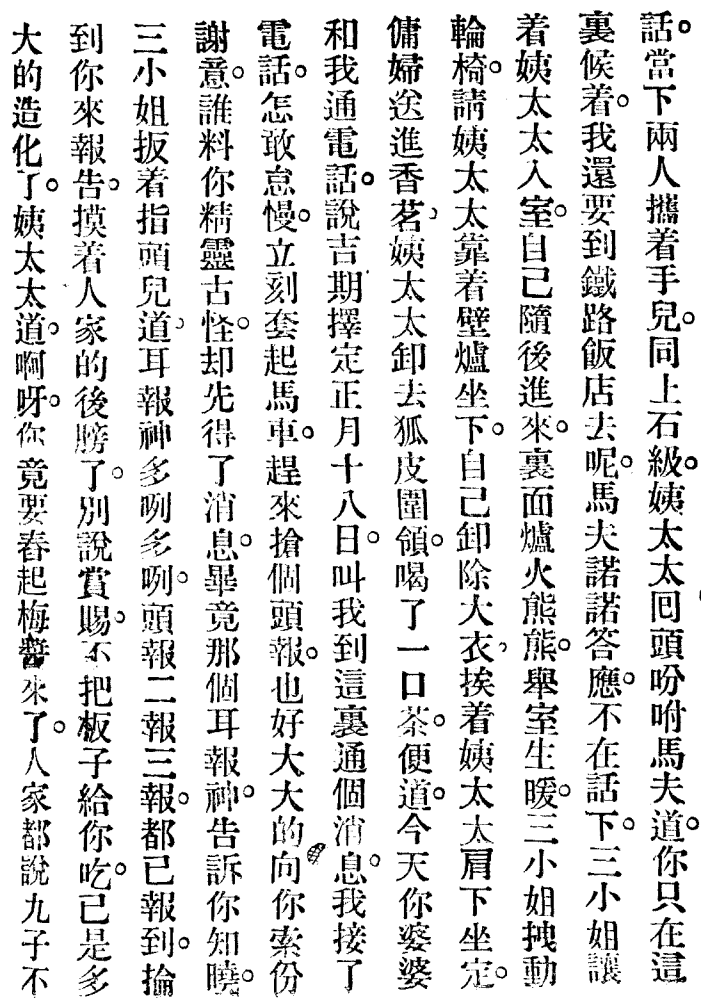 話。當下兩人攜着手兒。同上石級。姨太太回頭吩咐馬夫道。你只在這
裏候着。我還要到鐵路飯店去呢。馬夫諾諾答應。不在話下。三小姐讓
着姨太太入室。自己隨後進來。裏面爐火熊熊。舉室生暖。三小姐拽動
輪椅。請姨太太靠着壁爐坐下。自己卸除大衣、挨着姨太太肩下坐定。
傭婦送進香茗、姨太太卸去狐皮圍領。喝了一口茶。便道。今天你婆婆
和我通電話。說吉期擇定正月十八日。叫我到這裏通個消息。我接了
電話。怎敢怠慢。立刻套起馬車。趕來搶個頭報。也好大大的向你索份
謝意。誰料你精靈古怪。却先得了消息。畢竟那個耳報神。告訴你知曉。
三小姐扳着指頭兒道、耳報神多咧多咧。頭報二報三報。都已報到。掄
到你來報告。摸着人家的後膀了。別說賞賜。不把板子給你吃。已是多
大的造化了。姨太太道。啊呀。你竟要舂起梅醬來了。人家都說九子不